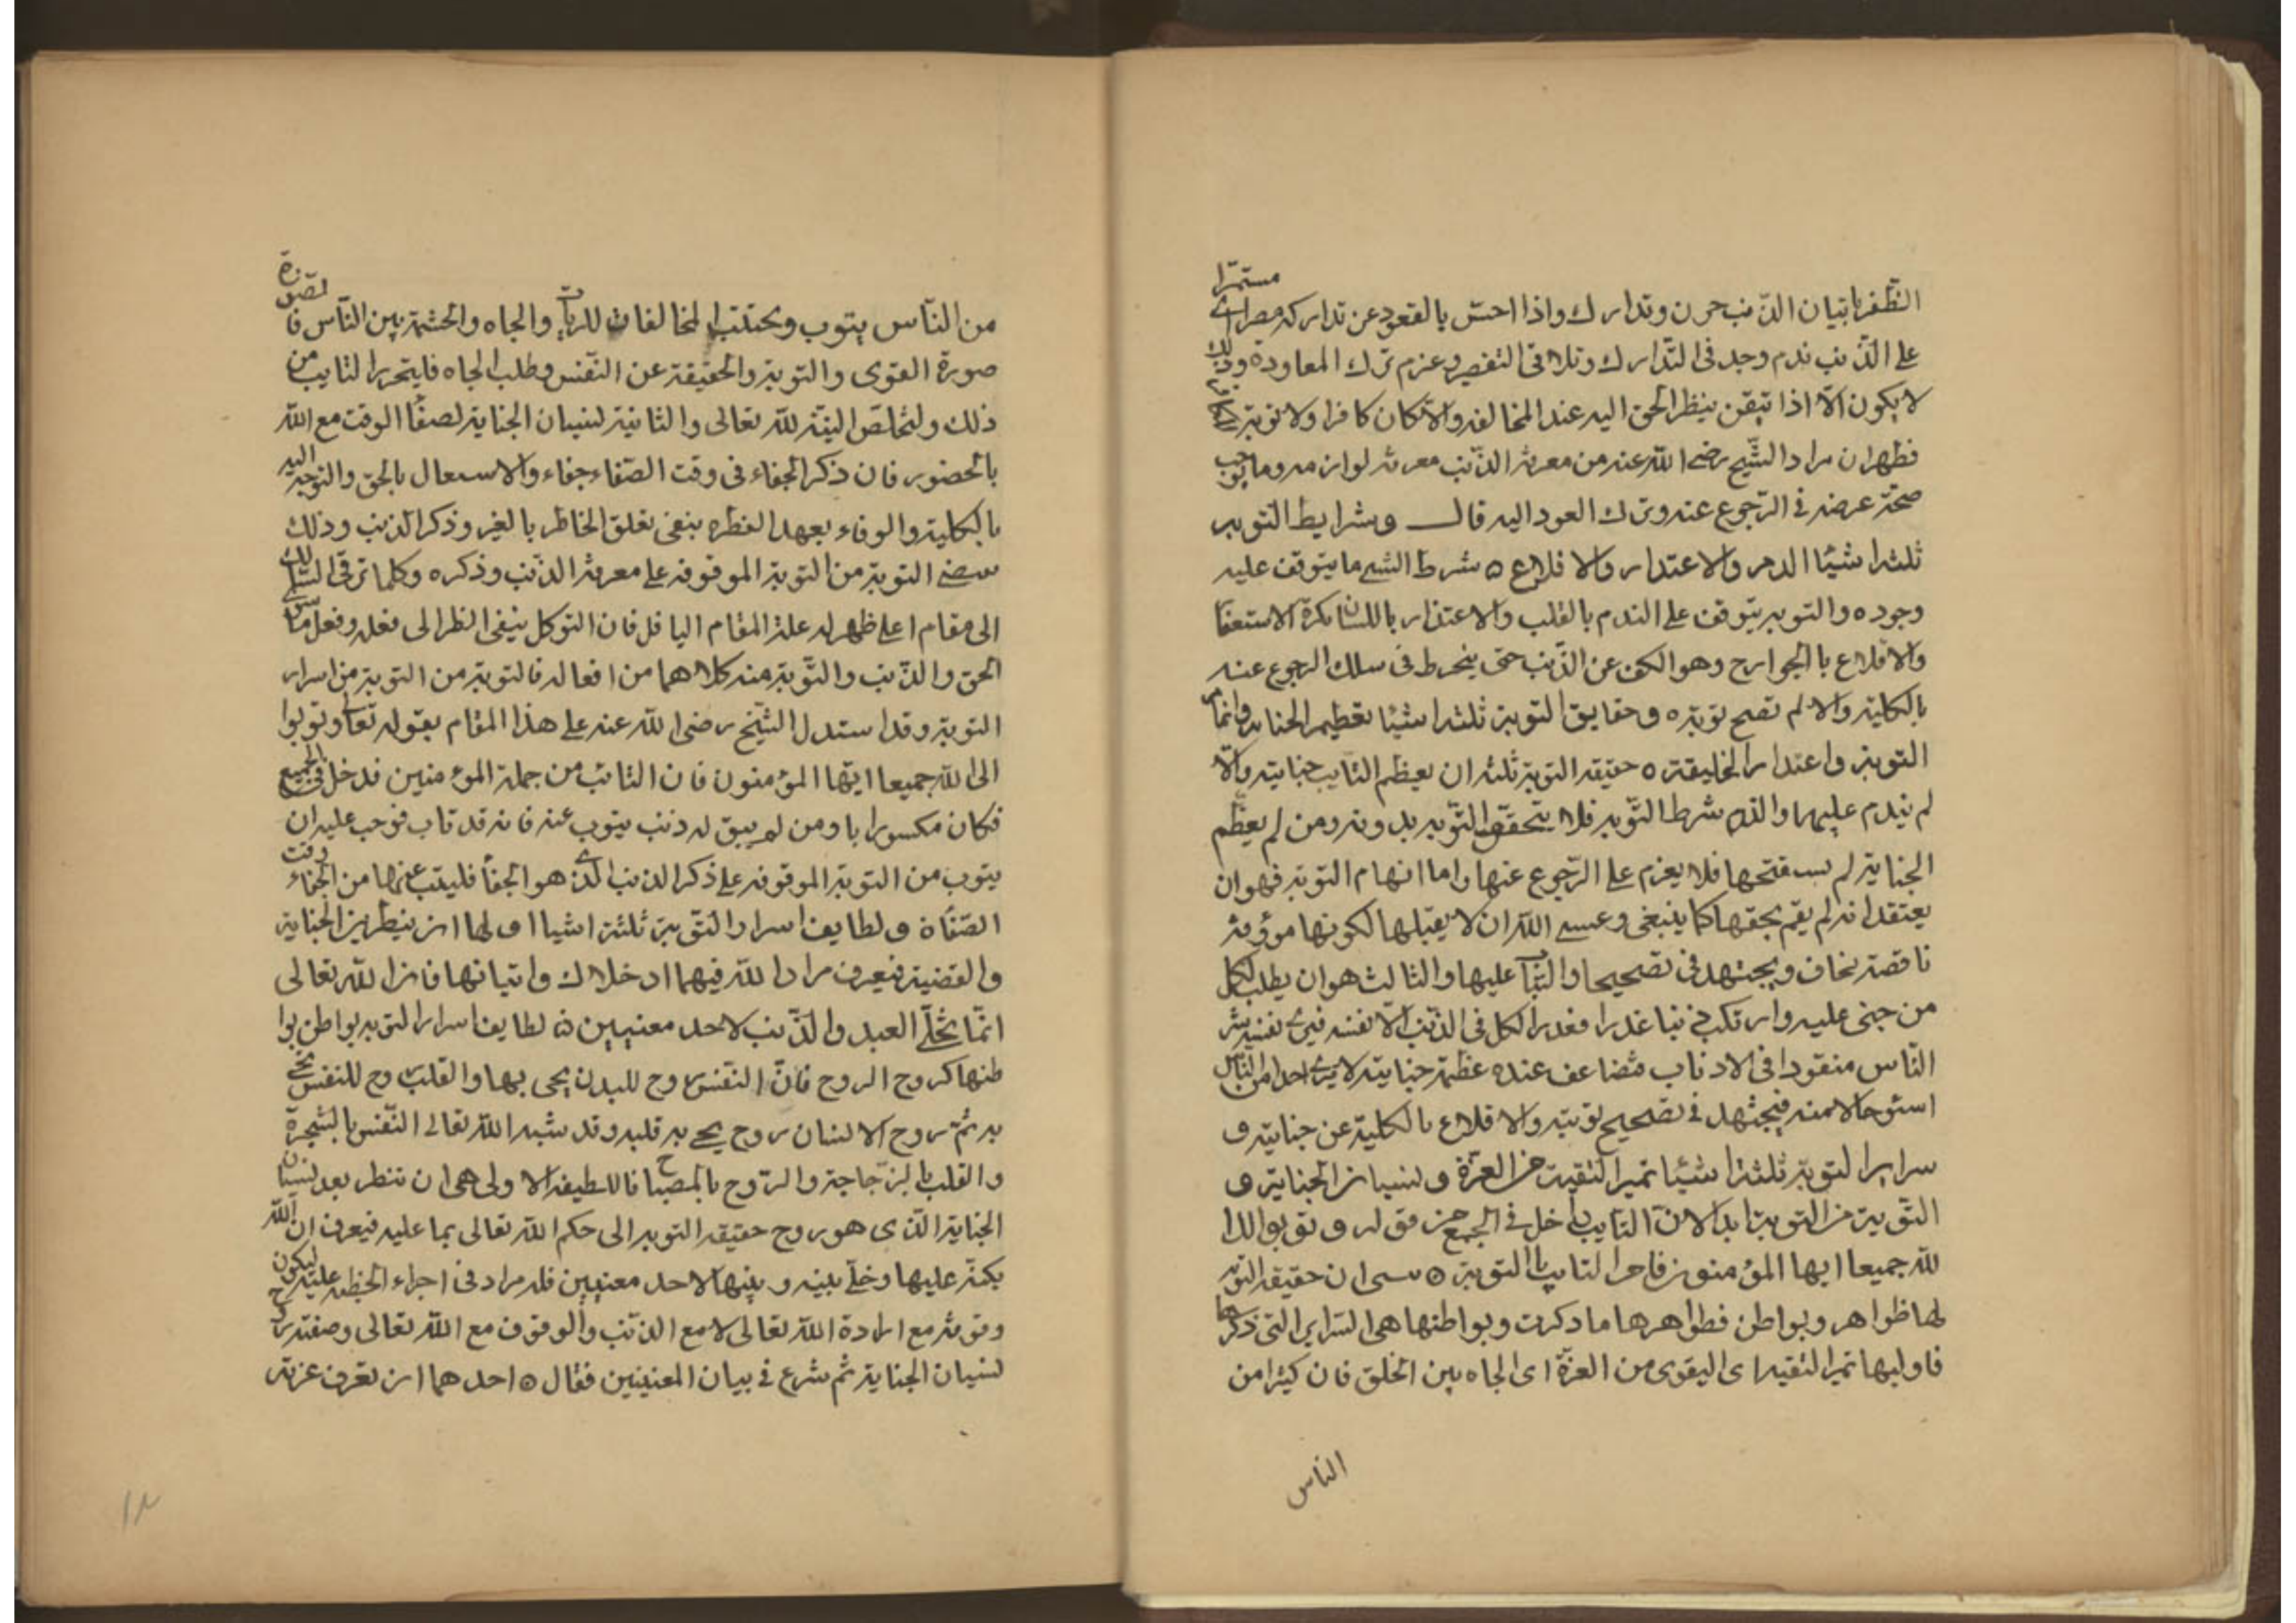 الظفر باتيان الذنب حزن وتدارك واذا احسّ بالقعود عن تداركه مصرا اى مستمرّا
على الذنب ندم وجد فى التدارك وتلافى التقصير وعزم ترك المعاودة وذلك
لا يكون الّا اذا تيقن بنظر الحق اليه عند المخالفه والّا كان كافرا ولا توبة
فظهران مراد الشيخ رضى الله عنه من معرفة الذنب معرفة لوازمه وما يوجب
صحّة عرضه فى الرّجوع عنه وترك العود اليه قال وشرايط التوبه
ثلثه اشيئا الدمر والاعتدار والاقلاع ه شرط الشى ما يتوقف عليه
وجوده والتوبه يتوقف على الندم بالقلب والاعتذار باللسان بكرة الاستعفا
والاقلاع بالجوارح وهو الكف عن الذّنب حتى ينخرط فى سلك الرجوع عنه
بالكلية والا لم تصح توبته ه وحقايق التوبة ثلثه اشيئا تعظيم الجنايه واتهام
التوبة واعتدار الخليقته ه حقيقه التوبة ثلثه ان يعظم التايب جنايته والّا
لم يندم عليها والندم شرط التّوبه فلا يتحقق التّوبه بدونه ومن لم يعظّم
الجناية لم يستقبحها فلا يعزم على الرّجوع عنها واما اتهام التوبة فهوان
يعتقد انه لم يقم بحقها كما ينبغى وعسى الله ان لا يقبلها لكونها موؤفة
ناقصة نخاف ويجتهد فى تصحيحها والثبات عليها والثالث هوان يطلب لكل
من جنى عليه وارتكب ذنبا عذرا فعذر الكل فى الذنب الّا نفسه فيرى نفسه شر
النّاس منقودا فى الاذناب فتضاعف عنده عظمة جنايته لا يرى احدا من النّاس
اسئوحالا منه فيجتهد فى تصحيح توبته والاقلاع بالكلية عن جنايته و
سراير التوبة ثلثه اشيئا تميز التقية من العزّة و نسيان الجناية و
التّوبة من التوبة ابدا لانّ التايب داخل فى الجمع من قوله و توبوا الدا
لله جميعا ايها المؤمنون فامر التايب بالتوبة ه سمى ان حقيقه التوبه
لها ظواهر وبواطن فظواهرها ما ذكرت وبواطنها هى السّراير التى ذكرها
فاوليها تميز التقيه اى اليقوى من العزّة اى الجاه بين الخلق فان كيثرا من
الناس
من النّاس يتوب ويجتنب المخالفات للرياء والجاه والحشمة بين النّاس فا لصورة
صورة التقوى والتوبة والحقيقة عن النّفس وطلب الجاه فليتحرز التايب من
ذلك وليخلّص النيّة لله تعالى والثانية لنسيان الجناية لصفا الوقت مع الله
بالحضور فان ذكر الجفاء فى وقت الصّفاء جفاء والاسعال بالحق والتوجه اليه
بالكلية والوفاء بعهد الفطره ينفى تعلق الخاطر بالغير وذكر الذنب وذلك
التوبة من التوبة الموقوفه على معرفة الذنب وذكره وكلما ترقى السالك
الى مقام اعلى ظهر له علة المقام السافل فان التوكل ينفى النظر الى فعله وفعل ما سوى
الحق والذنب والتّوبة منه كلاهما من افعاله فالتوبة من التوبة من اسرار
التوبة وقد استدل الشيخ رضى الله عنه على هذا المقام بقوله تعالى وتوبوا
الى الله جميعا ايّها المؤمنون فان التائب من جملة المؤمنين فدخل فى الجميع
فكان مكسورا با ومن لم يبق له ذنب يتوب عنه فانه قد تاب فوجب عليه ان
يتوب من التوبة الموقوفه على ذكر الذنب الذى هو الجفا فليتب عنها من الجفاء وقت
الصّفاة و لطايف اسرار التّوبة ثلثة اشيا اولها ان ينظر بين الجناية
والقضية فيعرف مراد الله فيهما اد خلاك واتيانها فان الله تعالى
انّما يخلّى العبد والذّنب لاحد معنيين لطايف اسرار التوبه بواطن بوا
طنها كروح الروح فانّ النفس روح للبدن يحى بها والقلب روح للنفس تحيى
به ثمّ روح الانسان روح يحى به قلبه وقد شبه الله تعالى النّفس بالشجرة
والقلب بالزّجاجة والرّوح بالمصباح فاللطيفه الاولى هى ان تنظر بعد نسيان
الجناية الّذى هو روح حقيقه التوبه الى حكم الله تعالى بما عليه فيعرف ان الله
يكتمّ عليها وخلّى بينه و بينها لاحد معنيين فله مراد فى اجراء الخطيئه عليه ليكون
وقوفه مع ارادة الله تعالى لا مع الذنب والوقوف مع الله تعالى وصفته روح
لنسيان الجناية ثم شرع فى بيان المعنيين فقال ه احدهما ان تعرف عزته